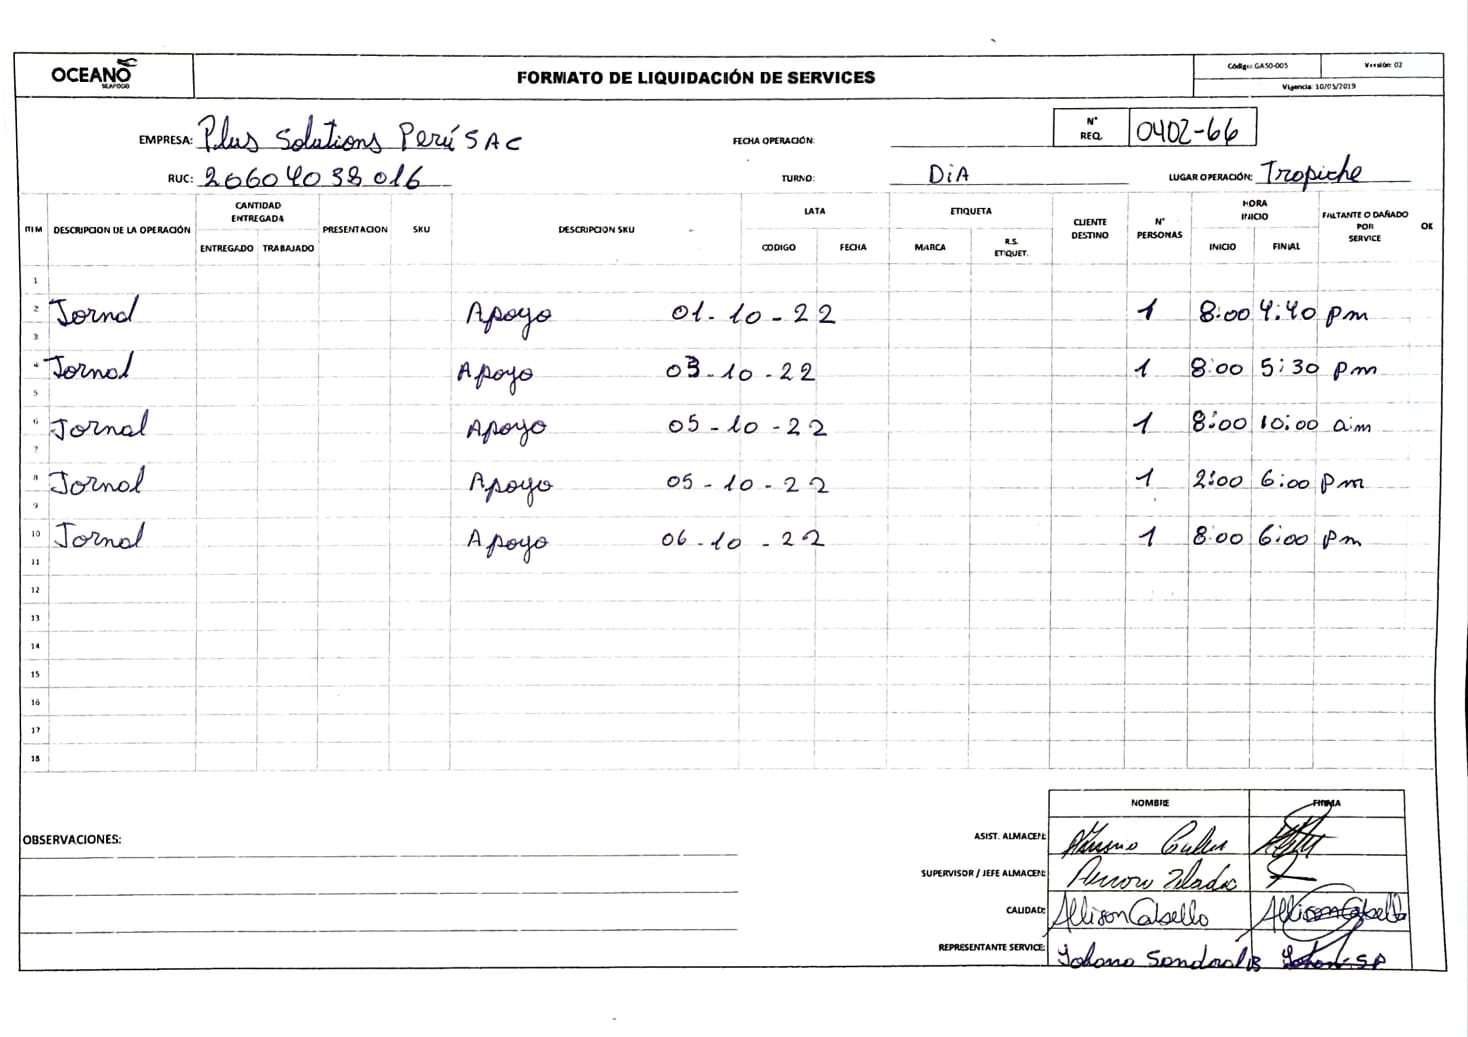 OCEANO
SEAFOOD
FORMATO DE LIQUIDACIÓN DE SERVICES
Código: GA50-005
Versión: 02
Vigencia: 10/05/2019
EMPRESA: Plus Solutions Perú SAC
FECHA OPERACIÓN:
N° REQ. 0402-66
RUC: 20604038016
TURNO: DiA
LUGAR OPERACIÓN: Tropiche
ITEM DESCRIPCION DE LA OPERACIÓN CANTIDAD ENTREGADA PRESENTACION SKU DESCRIPCION SKU LATA ETIQUETA CLIENTE DESTINO N° PERSONAS HORA INICIO FALTANTE O DAÑADO POR SERVICE OK
ENTREGADO TRABAJADO CODIGO FECHA MARCA R.S. ETIQUET. INICIO FINIAL
1
2 Jornal Apoyo 01-10-22 1 8:00 4:40 pm
3
4 Jornal Apoyo 03-10-22 1 8:00 5:30 pm
5
6 Jornal Apoyo 05-10-22 1 8:00 10:00 a.m
7
8 Jornal Apoyo 05-10-22 1 2:00 6:00 pm
9
10 Jornal Apoyo 06-10-22 1 8:00 6:00 pm
11
12
13
14
15
16
17
18
NOMBRE FIRMA
OBSERVACIONES:
ASIST. ALMACEN:
SUPERVISOR / JEFE ALMACEN:
CALIDAD: Allison Cabello Allison Cabello
REPRESENTANTE SERVICE: